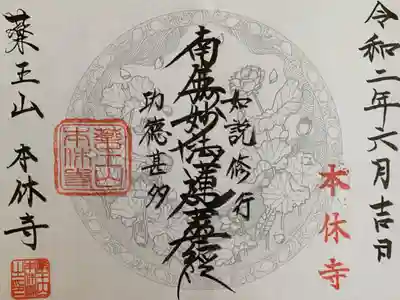 令和二年六月吉日
本休寺
如説修行
南無妙法蓮華経
功徳甚多
薬王山
本休寺
薬王山
本休寺